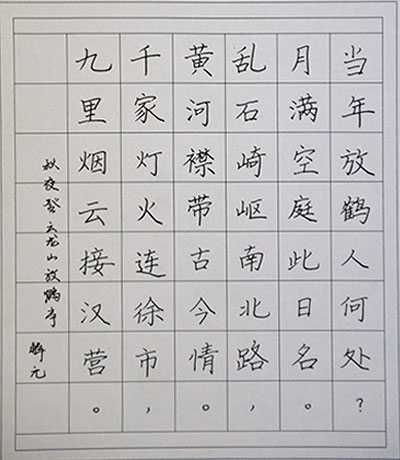 当年放鹤人何处？
月满空庭此日名。
乱石崎岖南北路，
黄河襟带古今情。
千家灯火连徐市，
九里烟云接汉营。
秋夜登云龙山放鹤亭
解元